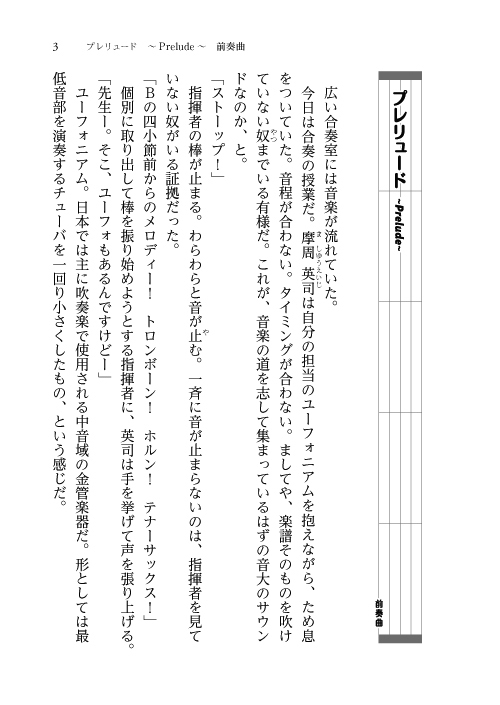 3　プレリュード　～Prelude～　前奏曲
プレリュード ～Prelude～
前奏曲
広い合奏室には音楽が流れていた。
今日は合奏の授業だ。摩周英司は自分の担当のユーフォニアムを抱えながら、ため息
ましゅうえいじ
をついていた。音程が合わない。タイミングが合わない。ましてや、楽譜そのものを吹け
ていない奴までいる有様だ。これが、音楽の道を志して集まっているはずの音大のサウン
やつ
ドなのか、と。
「ストーップ！」
指揮者の棒が止まる。わらわらと音が止む。一斉に音が止まらないのは、指揮者を見て
や
いない奴がいる証拠だった。
「Ｂの四小節前からのメロディー！　トロンボーン！　ホルン！　テナーサックス！」
個別に取り出して棒を振り始めようとする指揮者に、英司は手を挙げて声を張り上げる。
「先生ー。そこ、ユーフォもあるんですけどー」
ユーフォニアム。日本では主に吹奏楽で使用される中音域の金管楽器だ。形としては最
低音部を演奏するチューバを一回り小さくしたもの、という感じだ。